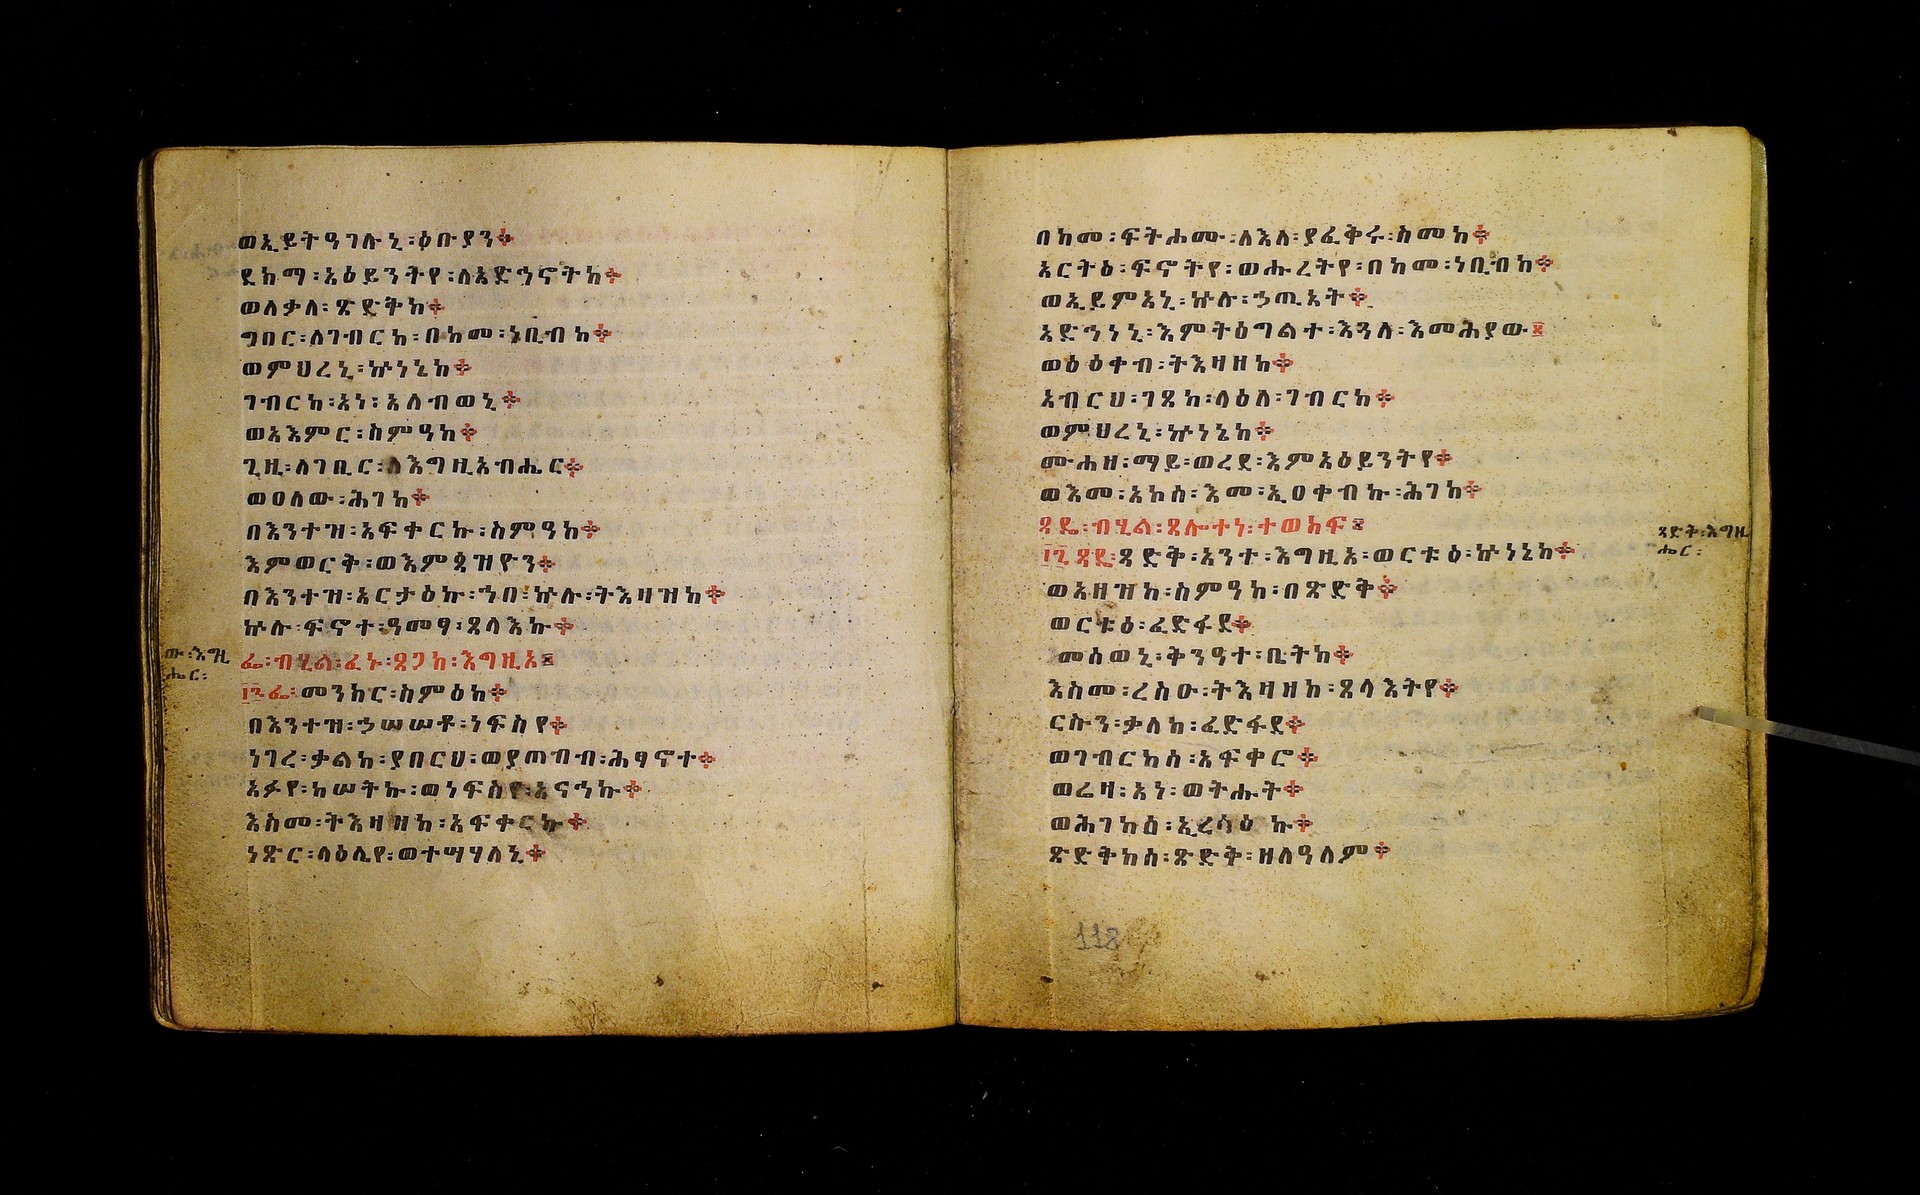 ወኢይትዓገሉኒ፡ዕቡያን፨
ደክማ፡አዕይንትየ፡ለአድኅኖትከ፨
ወለቃለ፡ጽድቅከ፨
ግበር፡ለገብርከ፡በከመ፡ነቢብከ፨
ወምህረኒ፡ኵነኔከ፨
ገብርከ፡አነ፡አለብወኒ፨
ወአእምር፡ስምዓከ፨
ጊዜ፡ለገቢር፡ለእግዚአብሔር፨
ወዐለው፡ሕገከ፨
በእንተዝ፡አፍቀርኩ፡ስምዓከ፨
እምወርቅ፡ወእምጳዝዮን፨
በእንተዝ፡አርታዕኩ፡ኀበ፡ኵሉ፡ትእዛዝከ፨
ኵሉ፡ፍኖተ፡ዓመፃ፡ጸላእኩ፨
ው፡እግዚ
ሔር፡
ፌ፡ብሂል፡ፈኑ፡ጸጋከ፡እግዚአ፨
፲፯ፌ፡መንክር፡ስምዕከ፨
በእንተዝ፡ኃሠሠቶ፡ነፍስየ፨
ነገረ፡ቃልከ፡ያበርህ፡ወያጠብብ፡ሕፃናተ፨
አፉየ፡ከሠትኩ፡ወነፍስየ፡አናኅኩ፨
እስመ፡ትእዛዘከ፡አፍቀርኩ፨
ነጽር፡ላዕሌየ፡ወተሣሃለኒ፨
በከመ፡ፍትሐሙ፡ለእለ፡ያፈቅሩ፡ስመከ፨
አርትዕ፡ፍኖትየ፡ወሑረትየ፡በከመ፡ነቢብከ፨
ወኢይምአኒ፡ኵሉ፡ኃጢአት፨
አድኅነኒ፡እምትዕግልተ፡እጓለ፡እመሕያው፨
ወዕዕቀብ፡ትእዛዘከ፨
አብርህ፡ገጸከ፡ላዕለ፡ገብርከ፨
ወምህረኒ፡ኵነኔከ፨
ሙሐዘ፡ማይ፡ወረደ፡እምአዕይንትየ፨
ወእመ፡አኮስ፡እመ፡ኢዐቀብኩ፡ሕገከ፨
ጻዴ፡ብሂል፡ጸሎተነ፡ተወከፍ፨
፲፰ጻዴ፡ጻድቅ፡አንተ፡እግዚአ፡ወርቱዕ፡ኵነኔከ፨
ጻድቅ፡እግዚ
ሔር፡
ወአዘዝከ፡ስምዓከ፡በጽድቅ፨
ወርቱዕ፡ፈድፋደ፨
መስወኒ፡ቅንዓተ፡ቤትከ፨
እስመ፡ረስዑ፡ትእዛዘከ፡ጸላእትየ፨
ርሱን፡ቃለከ፡ፈድፋደ፨
ወገብርከሰ፡አፍቀሮ፨
ወሬዛ፡አነ፡ወትሑት፨
ወሕገከሰ፡ኢረሳዕኩ፨
ጽድቅከሰ፡ጽድቅ፡ዘለዓለም፨
118